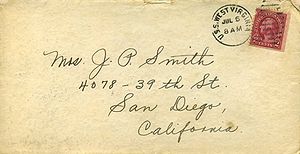 U.S.S. WEST VIRGINIA
JUL 6
8 AM
Mrs. J. P. Smith
4078 - 39 th St.
San Diego,
California.